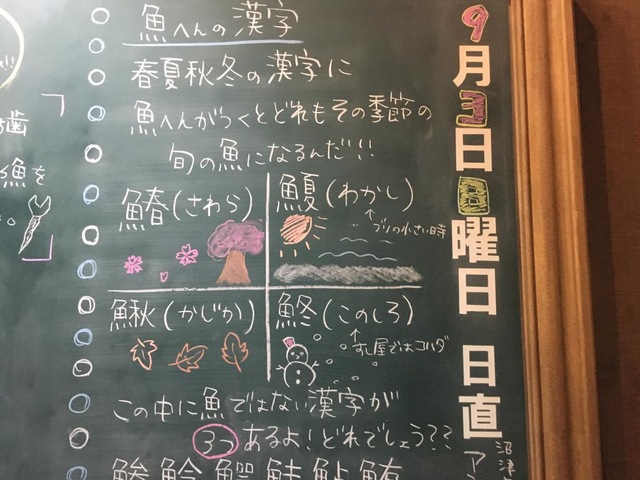 魚へんの漢字
春夏秋冬の漢字に
魚へんがつくとどれもその季節の
旬の魚になるんだ!!
鰆(さわら)
䱬(わかし)
↑ブリの小さい時
鰍(かじか)
鮗(このしろ)
↑すし屋ではコハダ
この中に魚ではない漢字が
3つあるよ!どれでしょう??
9月3日日曜日 日直
沼津
ア
歯
魚を